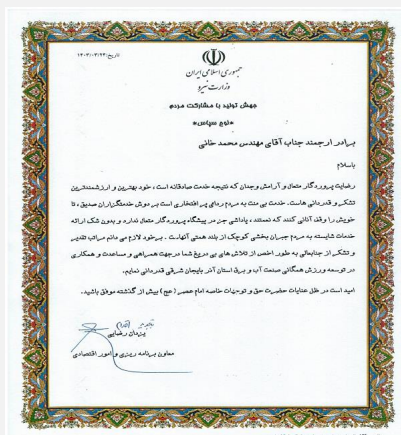 تاریخ: ۱۴۰۳/۰۳/۲۳
جمهوری اسلامی ایران
وزارت نیرو
جهش تولید با مشارکت مردم
«لوح سپاس»
برادر ارجمند جناب آقای مهندس محمد خانی
باسلام
رضایت پروردگار متعال و آرامش وجدان که نتیجه خدمت صادقانه است، خود بهترین و ارزشمندترین
تشکر و قدردانی هاست. خدمت بی منت به مردم ردای پر افتخاری است بر دوش خدمتگزاران صدیق، تا
خویش را وقف آنانی کنند که نعمتند، پاداشی جز در پیشگاه پروردگار متعال ندارد و بدون شک ارائه
خدمات شایسته به مردم جبران بخشی کوچک از بلند همتی آنهاست. برخود لازم می دانم مراتب تقدیر
و تشکر از جنابعالی به طور اخص از تلاش های بی دریغ شما درجهت همراهی و مساعدت و همکاری
در توسعه ورزش همگانی صنعت آب و برق استان آذربایجان شرقی قدردانی نمایم.
امید است در ظل عنایات حضرت حق و توجهات خاصه امام عصر (عج) بیش از گذشته موفق باشید.
یزدان رضایی
معاون برنامه ریزی و امور اقتصادی